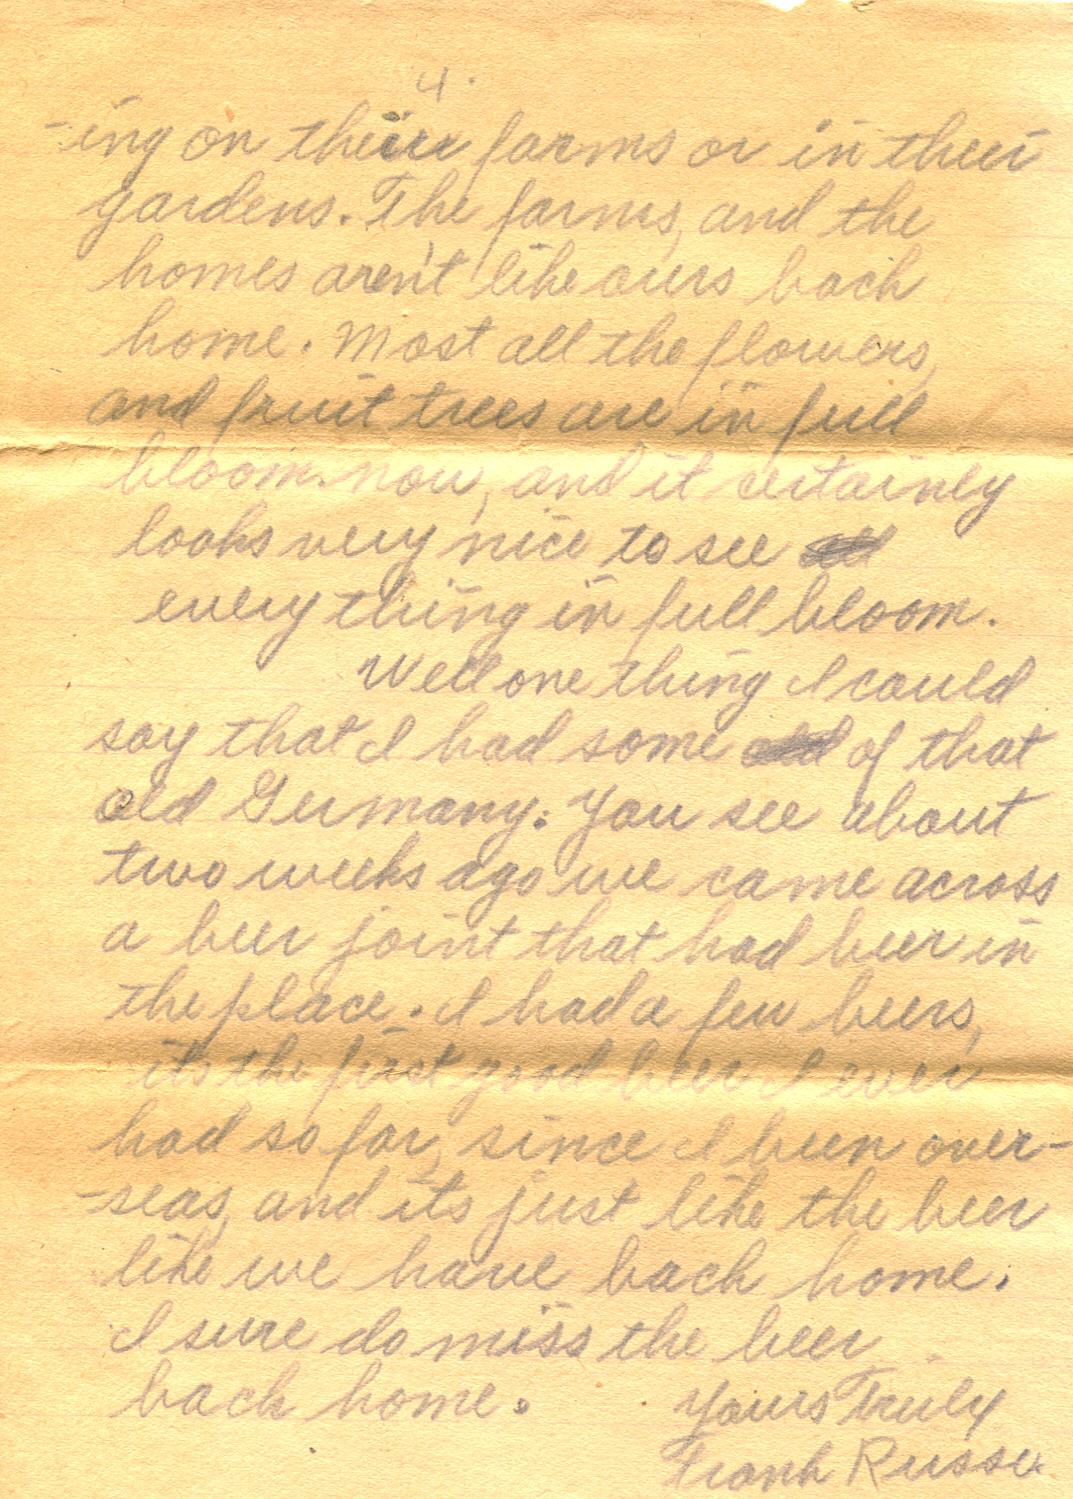 4.
-ing on their farms or in their
gardens. The farms, and the
homes aren't like ours back
home. Most all the flowers,
and fruit trees are in full
bloom now, and it certainly
looks very nice to see
everything in full bloom.
Well one thing I could
say that I had some of that
old Germany. You see about
two weeks ago we came across
a beer joint that had beer in
the place. I had a few beers,
its the first good beer I ever
had so far, since I been over-
-seas, and its just like the beer
like we have back home.
I sure do miss the beer
back home.
Yours Truly
Frank Russo